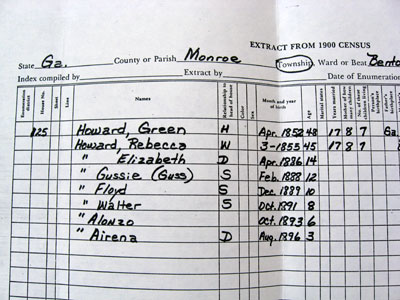 EXTRACT FROM 1900 CENSUS
State Ga. County or Parish Monroe Township, Ward or Beat Bento
Index compiled by Extract by Date of Enumeration
Enumeration district House No. Street Line Names Relationship to head of house Color Sex Month and year of birth Age Marital status Years married Mother of how many children No. of these children living
125 Howard, Green H Apr. 1852 48 17 8 7 Ga.
Howard, Rebecca W 3-1855 45 17 8 7
" Elizabeth D Apr. 1886 14
" Gussie (Guss) S Feb. 1888 12
" Floyd S Dec. 1889 10
" Walter S Oct. 1891 8
" Alonzo Oct. 1893 6
" Airena D Aug. 1896 3